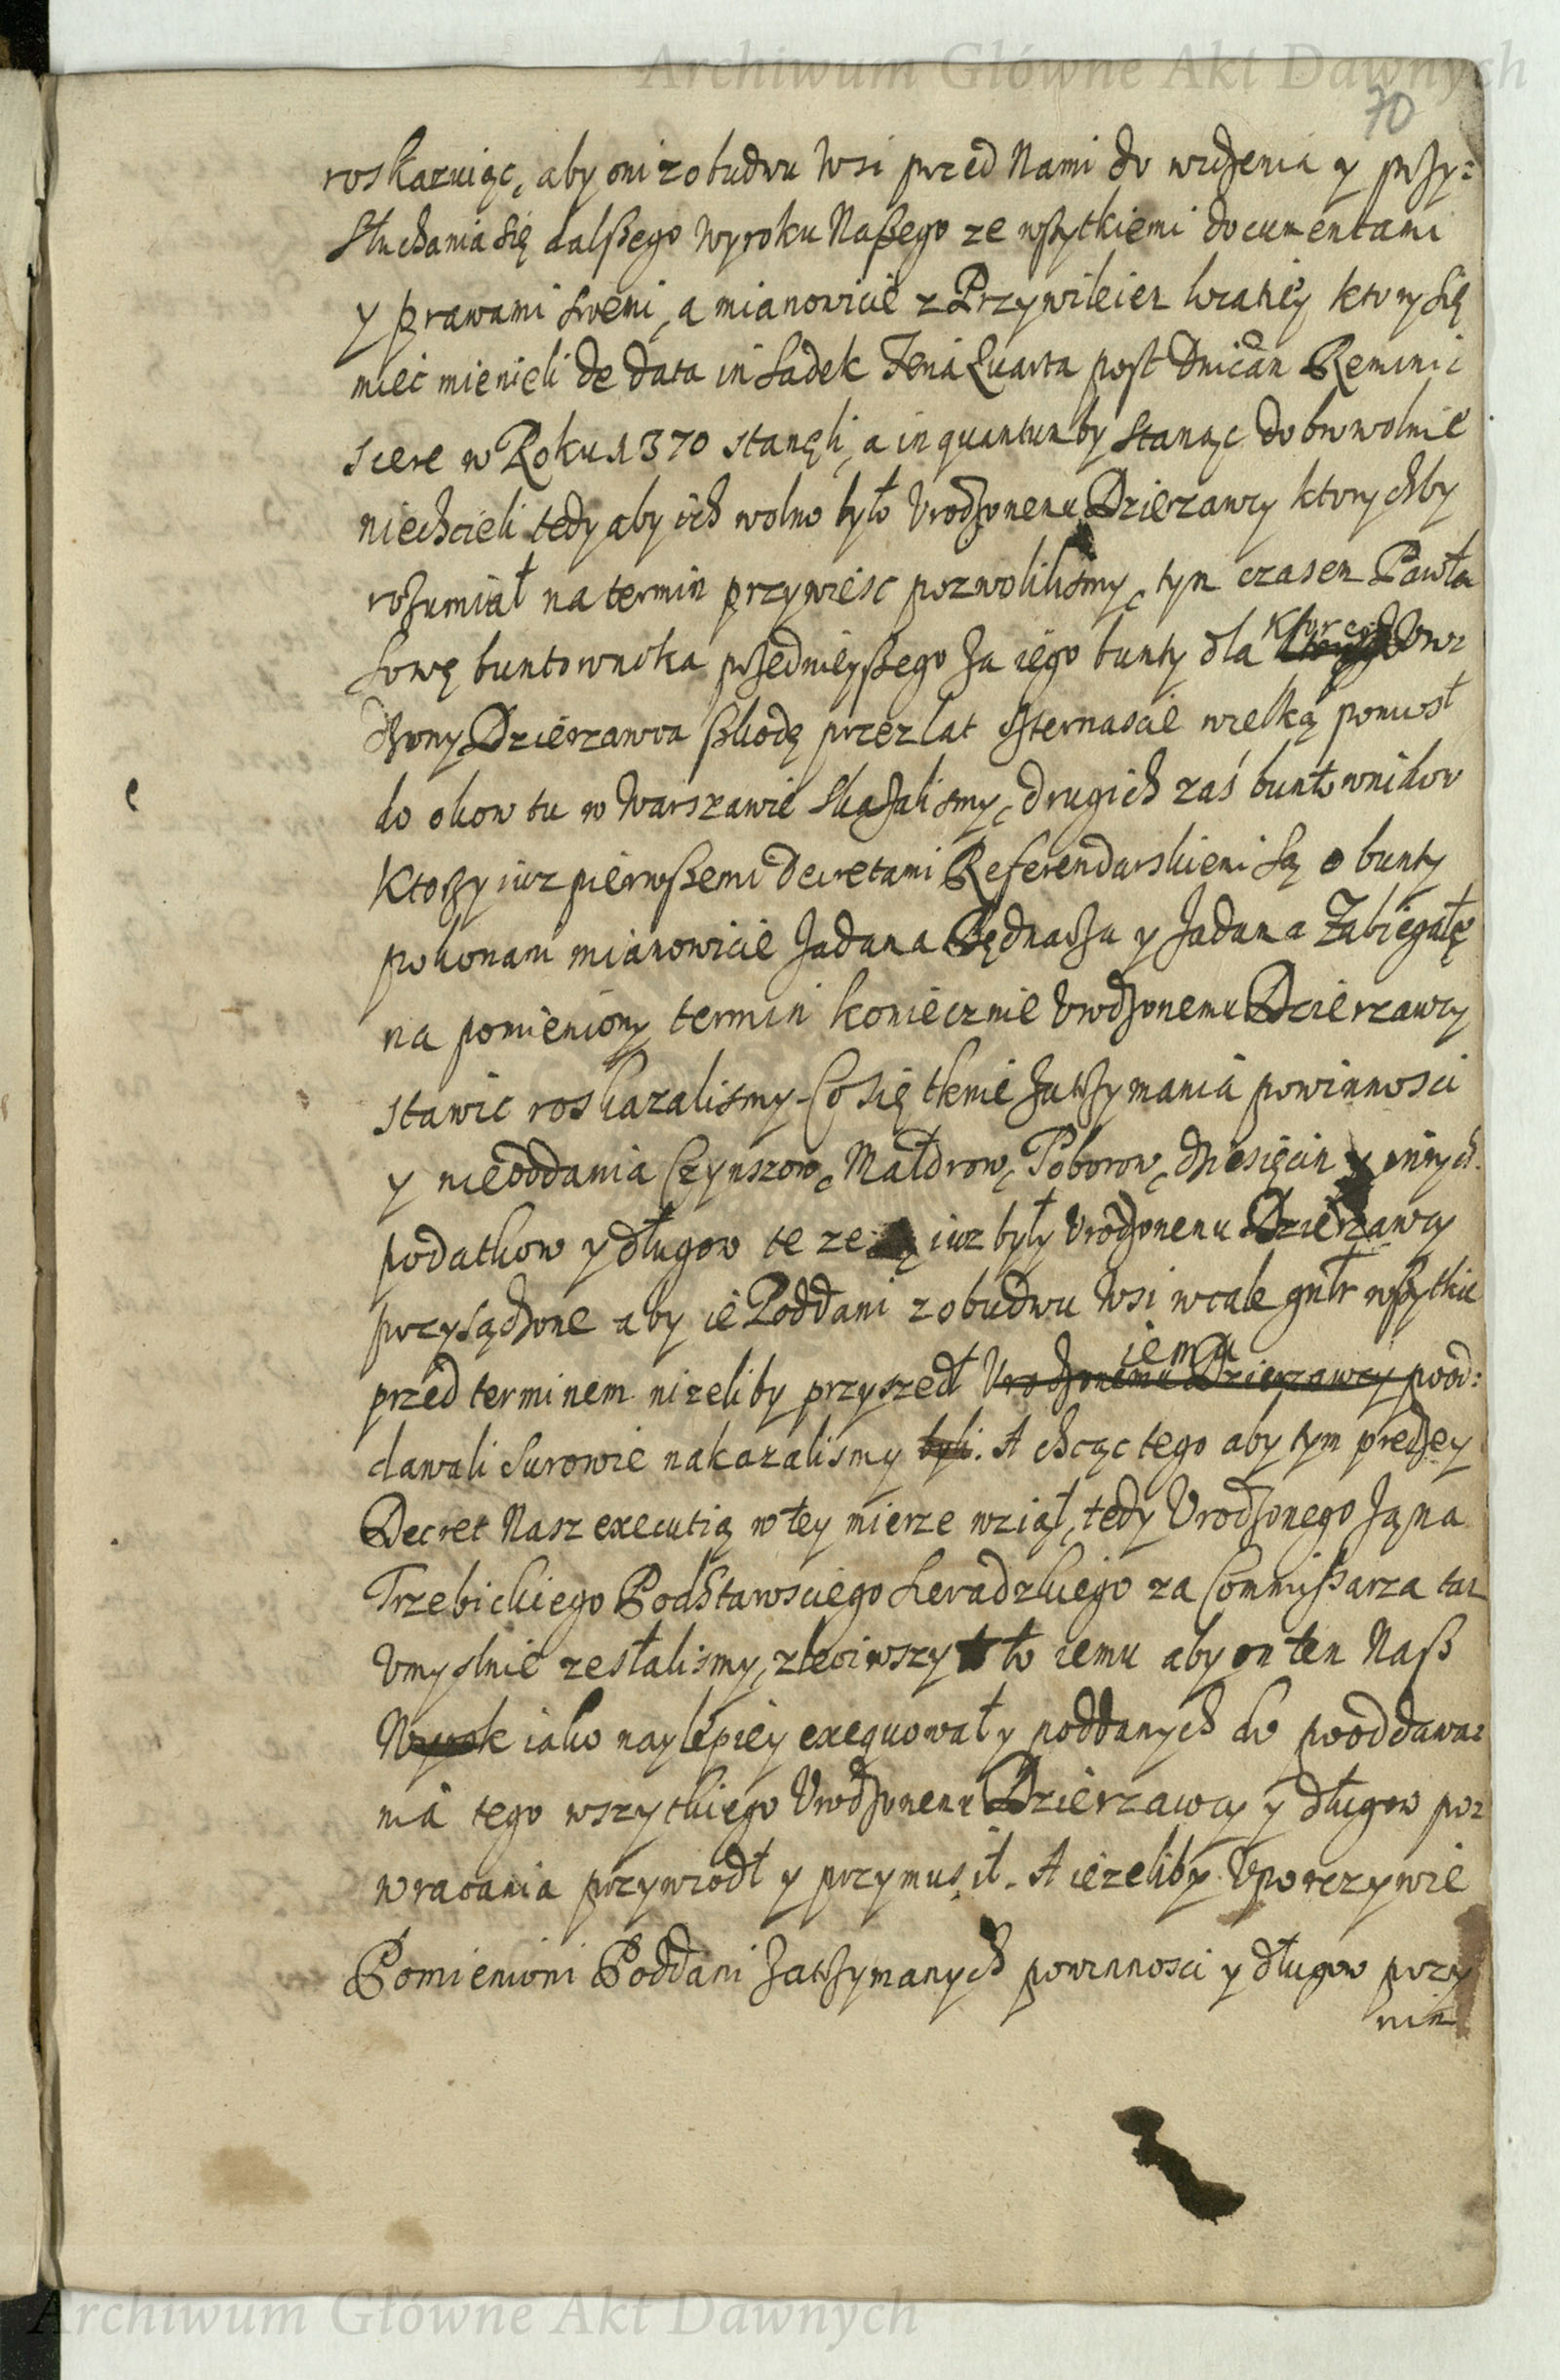 Archiwum Główne Akt Dawnych
70
roskazuiąc, aby oni z obudwu Wsi przed Nami do widzenia y przy:
słuchania się dalszego Wyroku Naszego ze wszytkiemi documentami
y prawami swemi, a mianowicie z Przywileiem który się
mieć mienieli de data in Sadek Feria Quarta post Dnicam Reminis
scere w Roku 1370 stanęli, a in quantumby stanąc dobrowolnie
niechcieli tedy aby ich wolno było Vrodzonemu Dzierzawcy ktorychby
rozumiał na termin przywiesc pozwolilismy, tym czasem Pawła
Sowę buntownika przednieyszego za iego bunty dla ktorych Vro
dzony Dzierzawca szkodę przez lat czternascie wielką poniosł
do okow tu w Warszawie skazalismy, drugich zaś buntownikow
Ktorzy iuz pierwszemi decretami Referendarskiemi są o bunty
pokonani mianowicie Jadama Będnarza y Jadama Zabiegałę
na pomieniony termin koniecznie Vrodzonemu Dzierzawcy
stawic roskazalismy. Co się tknie zatrzymania powinnosci
y nieoddania Czynszow, Małdrow, Poborow, dziesięcin y inych
podatkow y długow te ze iuz były Vrodzonemu Dzierzawcy
przysądzone aby ie Poddani z obudwu Wsi wcale gnłr wszytkie
iemu
przed terminem nizeliby przyszedł Vrodzonemu Dzierzawcy pood:
dawali surowie nakazalismy byli. A chcąc tego aby tym predzey
Decret Nasz executią w tey mierze wziął, tedy Vrodzonego Jana
Trzebickiego Podstarosciego Sieradzkiego za Commissarza tam
Vmyslnie zesłalismy, zleciwszy to iemu aby on ten Nasz
Wyrok iako naylepiey exequował y poddanych do pooddawa:
nia tego wszytkiego Vrodzonemu Dzierzawcy y długow po:
wracania przywiodł y przymusił. A iezeliby Vporczywie
Pomienioni Poddani zatrzymanych powinnosci y długow przy
nim
Archiwum Główne Akt Dawnych